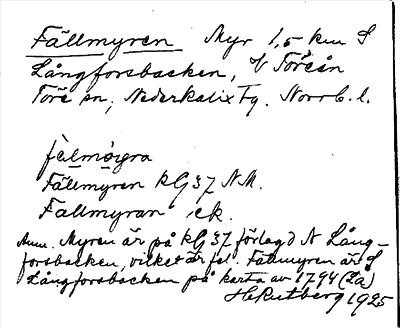 Fällmyren Myr 1,5 km S
Långforsbacken, V Töreån
Töre sn, Nederkalix tg. Norrb. l.
fèlmøigra
Fällmyren kG 37 N.M.
Fällmyran ek.
Anm. Myren är på kG 37 förlagd N Lång-
forsbacken, vilket är fel. Fällmyren är S
Långforsbacken på karta av 1794 (La)
H Rutberg 1925